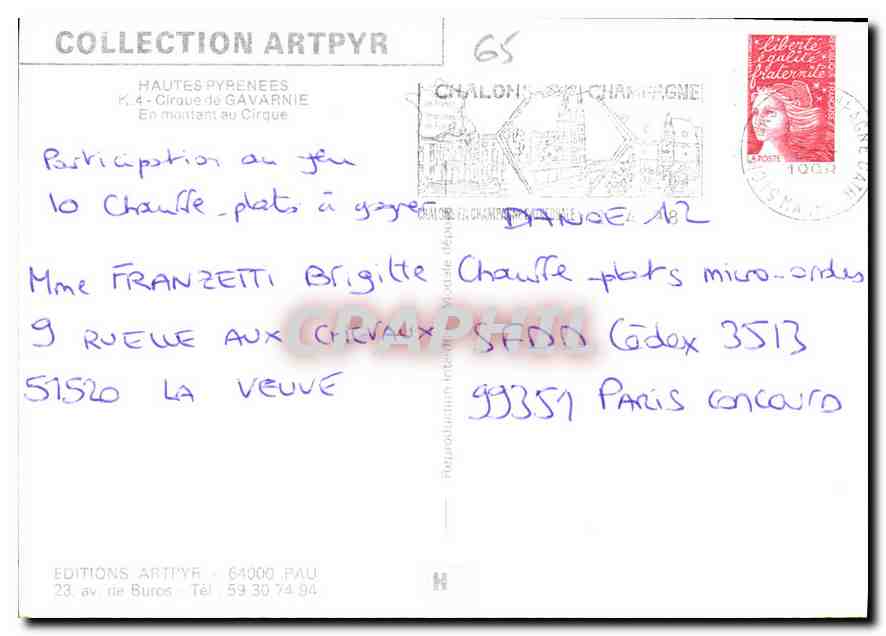 COLLECTION ARTPYR
65
HAUTES PYRENEES
K.4 - Cirque de GAVARNIE
En montant au Cirque
CHALONS CHAMPAGNE
CHALONS EN CHAMPAGNE
liberté
égalité
fraternité
LA POSTE
Participation au jeu
10 Chauffe-plats à gagner
Mme FRANZETTI Brigitte
9 RUELLE AUX CHEVAUX
51520 LA VEUVE
DANOE 12
Chauffe-plats micro-ondes
SFDD Cédex 3513
99351 PARIS CONCOURS
CPAPHIL
EDITIONS ARTPYR - 64000 PAU
23, av. de Buros - Tél. 59 30 74 94
H